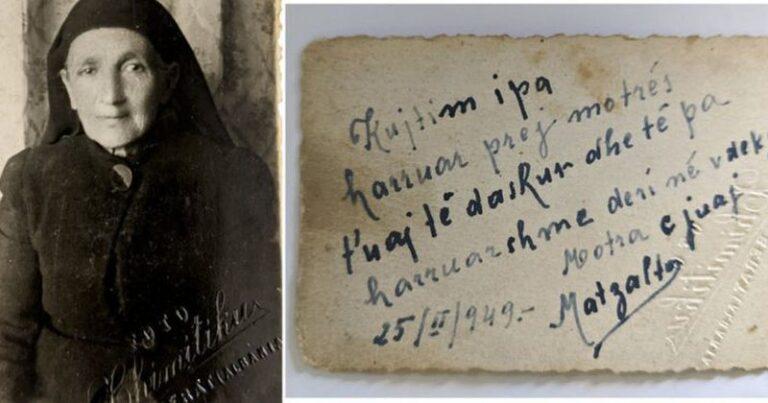 FOTO
Kujtim i pa
harruar prej motrës
t'uaj të daskur dhe të pa
harruarshme deri në vdekj
Motra e juaj
25/II/949.- Matzalta